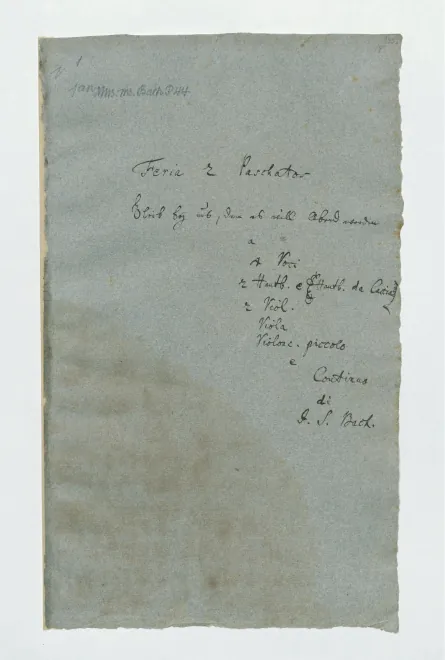 1
Mus. ms. Bach P 44
Feria 2 Paschatos
Bleib bey uns, denn es will Abend werden
a
4 Voci
2 Hautb. e Hautb. da Caccia
2 Viol.
Viola
Violonc. piccolo
e
Continuo
di
J. S. Bach.